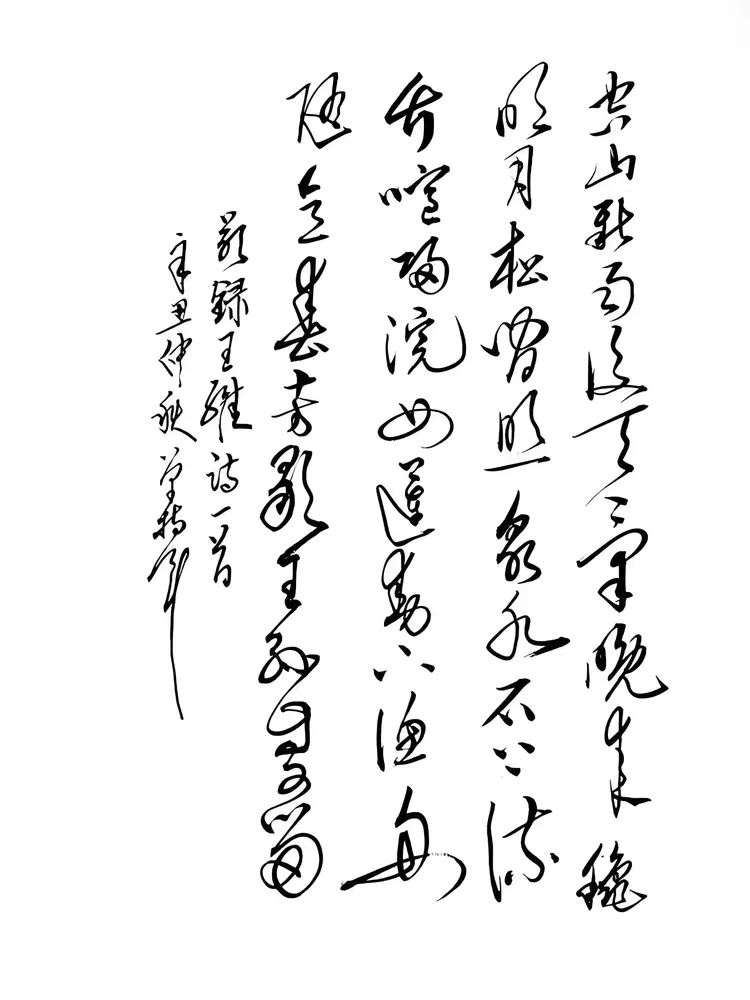 空山新雨後天氣晚來龝
明月松間照泉石上流
竹喧歸浣女蓮動下漁舟
隨意春芳歇王孫自可留
敬録王維詩一首
辛丑仲秋